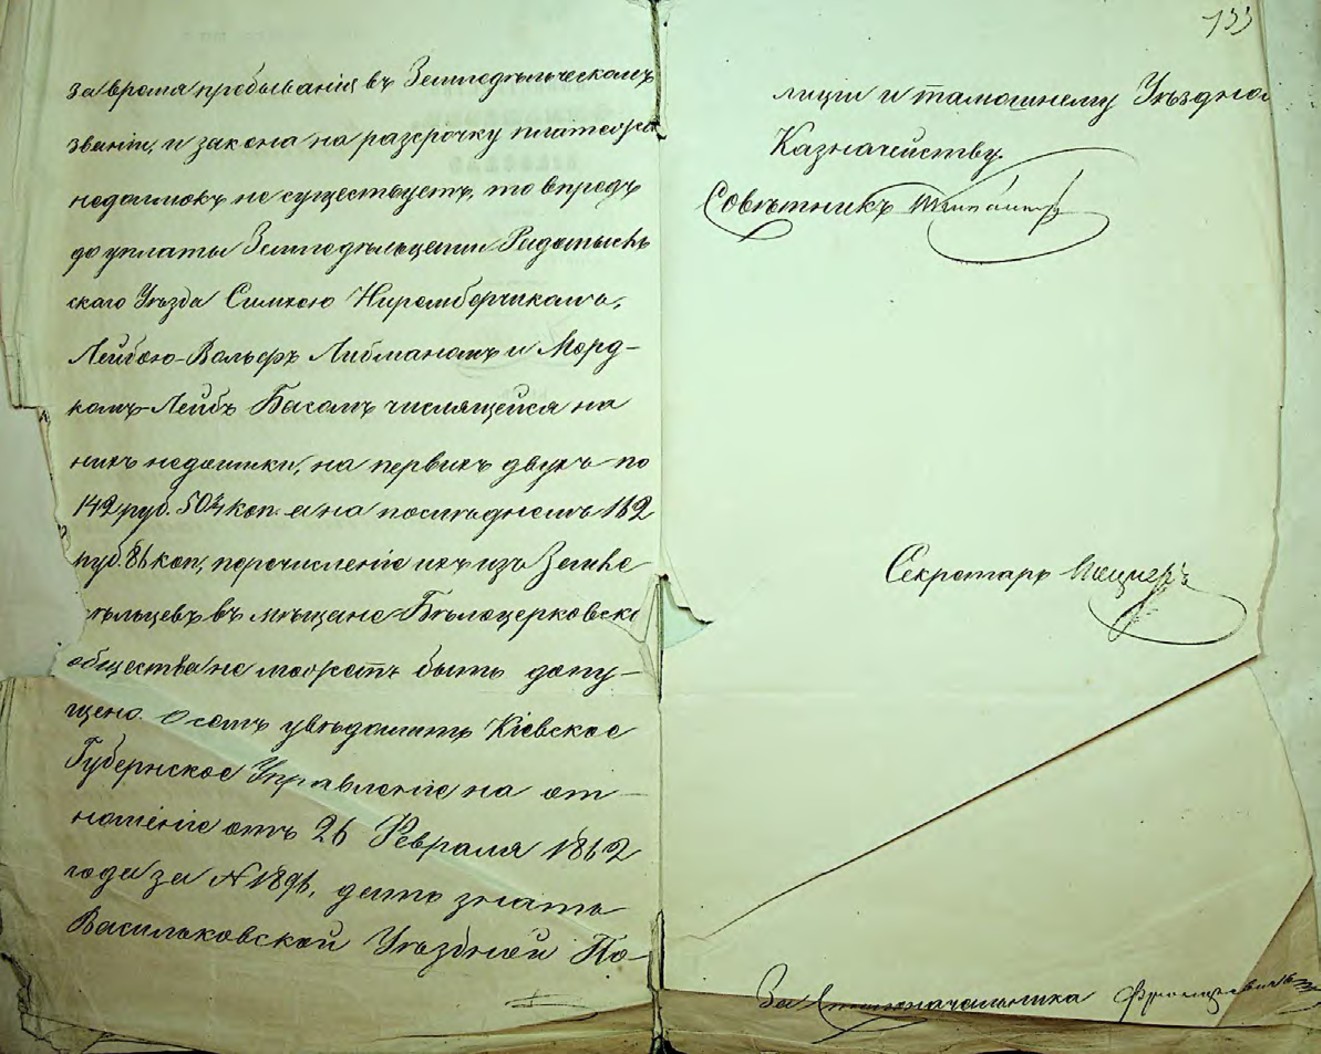 за время пребыванія въ Земледѣльческомъ
званіи, и закона на разсрочку платежа
недоимокъ не существуетъ, то впредь
до уплаты Земледѣльцами Радомысль
скаго Уѣзда Симхою Ниренберчикомъ,
Лейбою-Вольфъ Либманомъ и Морд-
комъ-Лейбъ Басомъ числящейся на
нихъ недоимки, на первыхъ двухъ по
142 руб. 50¾ коп. а на послѣднемъ 162
руб. 86 коп, перечисленіе ихъ изъ Землед
ѣльцевъ въ мѣщане Бѣлоцерковска
общества не можетъ быть допу-
щено. О семъ увѣдомить Кіевское
Губернское Управленіе на от-
ношеніе отъ 26 Февраля 1862
года за № 1896, дать знать
Васильковской Уѣздной По-
133
лиціи и тамошнему Уѣздно
Казначейству.
Совѣтникъ
Секретарь
За Столоначальника